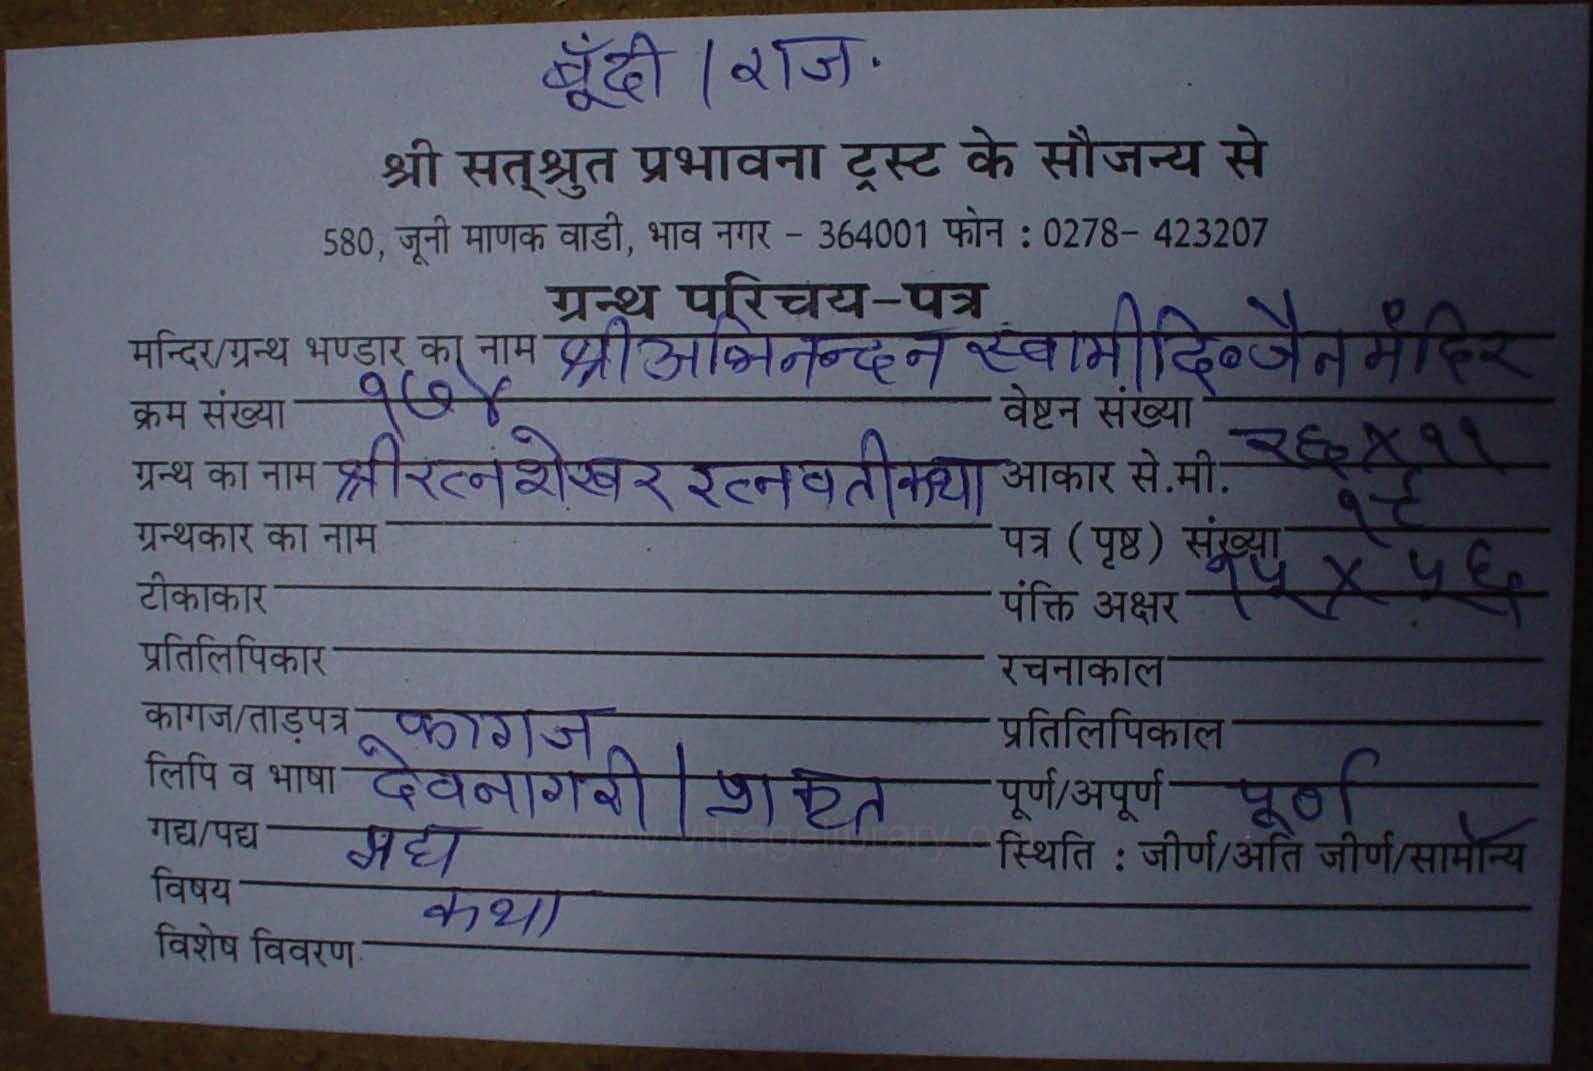 बूँदी / राज.
श्री सत्श्रुत प्रभावना ट्रस्ट के सौजन्य से
580, जूनी माणक वाडी, भाव नगर – 364001 फोन : 0278– 423207
ग्रन्थ परिचय–पत्र
मन्दिर/ग्रन्थ भण्डार का नाम श्री अभिनन्दन स्वामी दि॰ जैन मंदिर
क्रम संख्या १७४ वेष्टन संख्या
ग्रन्थ का नाम श्री रत्नशेखर रत्नवती कथा आकार से.मी. २६ × ११
ग्रन्थकार का नाम पत्र (पृष्ठ) संख्या १८
टीकाकार पंक्ति अक्षर १५ × ५६
प्रतिलिपिकार रचनाकाल
कागज/ताड़पत्र कागज प्रतिलिपिकाल
लिपि व भाषा देवनागरी / प्राकृत पूर्ण/अपूर्ण पूर्ण
गद्य/पद्य स्थिति : जीर्ण/अति जीर्ण/सामान्य
विषय कथा
विशेष विवरण